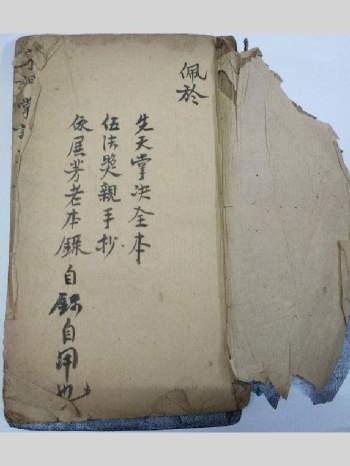 佩於
先天掌决全本
伍法奬親手抄
依展芳老本錄自錄自用也